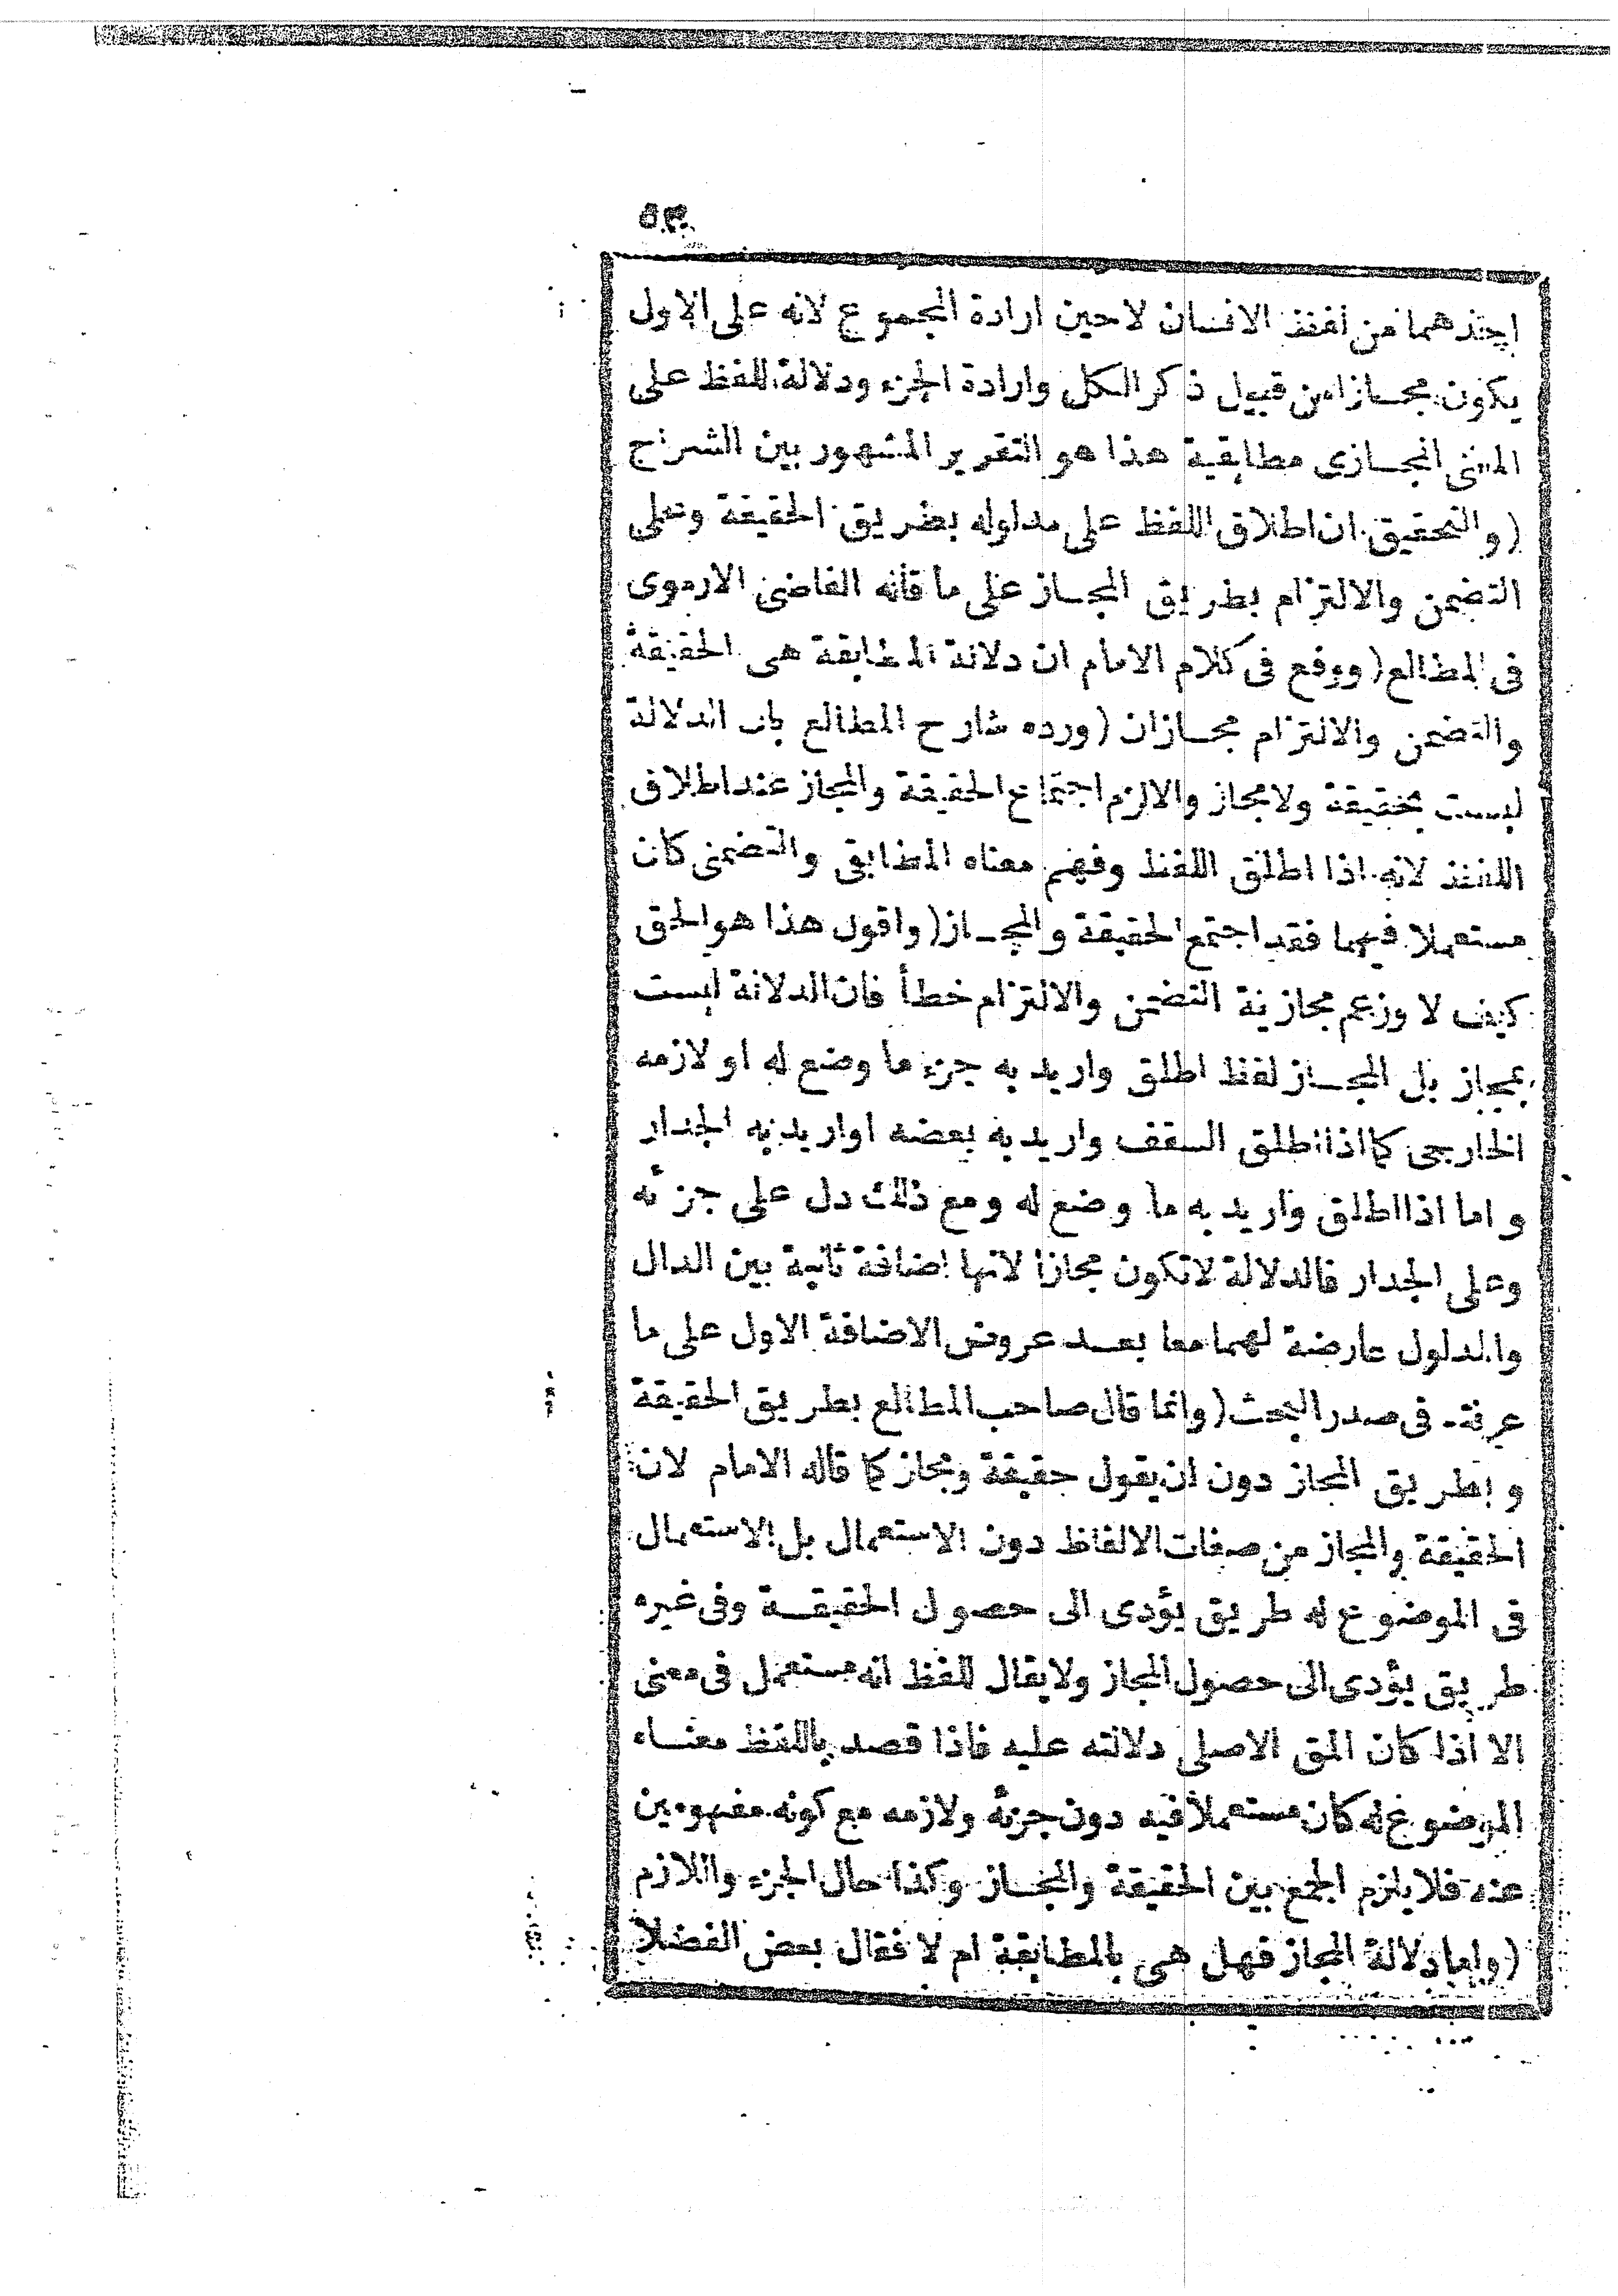 ٥٣
احدهما من لفظ الانسان لا حين ارادة المجموع لانه على الاول
يكون مجازا من قبيل ذكر الكل وارادة الجزء ودلالة اللفظ على
المعنى المجازى مطابقية هذا هو التقرير المشهور بين الشراح
(والتحقيق ان اطلاق اللفظ على مدلوله بطريق الحقيقة وعلى
التضمن والالتزام بطريق المجاز على ما قاله القاضى الارموى
فى المطالع (ووقع فى كلام الامام ان دلالة المطابقة هى الحقيقة
والتضمن والالتزام مجازان (ورده شارح المطالع بان الدلالة
ليست بحقيقة ولا مجاز والا لزم اجتماع الحقيقة والمجاز عند اطلاق
اللفظ لانه اذا اطلق اللفظ وفهم معناه المطابقى والتضمنى كان
مستعملا فيهما فقد اجتمع الحقيقة والمجاز (واقول هذا هو الحق
كيف لا وزعم مجازية التضمن والالتزام خطأ فان الدلالة ليست
بمجاز بل المجاز لفظ اطلق واريد به جزء ما وضع له او لازمه
الخارجى كما اذا اطلق السقف واريد به بعضه او اريد به الجدار
واما اذا اطلق واريد به ما وضع له ومع ذلك دل على جزئه
وعلى الجدار فالدلالة لا تكون مجازا لانها اضافة ثانية بين الدال
والمدلول عارضة لهما معا بعد عروض الاضافة الاول على ما
عرفته فى صدر البحث (وانما قال صاحب المطالع بطريق الحقيقة
وبطريق المجاز دون ان يقول حقيقة ومجاز كما قاله الامام لان
الحقيقة والمجاز من صفات الالفاظ دون الاستعمال بل الاستعمال
فى الموضوع له طريق يؤدى الى حصول الحقيقة وفى غيره
طريق يؤدى الى حصول المجاز ولا يقال للفظ انه مستعمل فى معنى
الا اذا كان المق الاصلى دلالته عليه فاذا قصد باللفظ معناه
الموضوع له كان مستعملا فيه دون جزئه ولازمه مع كونه مفهومين
عنه فلا يلزم الجمع بين الحقيقة والمجاز وكذا حال الجزء واللازم
(واما دلالة المجاز فهل هى بالمطابقة ام لا فقال بعض الفضلا